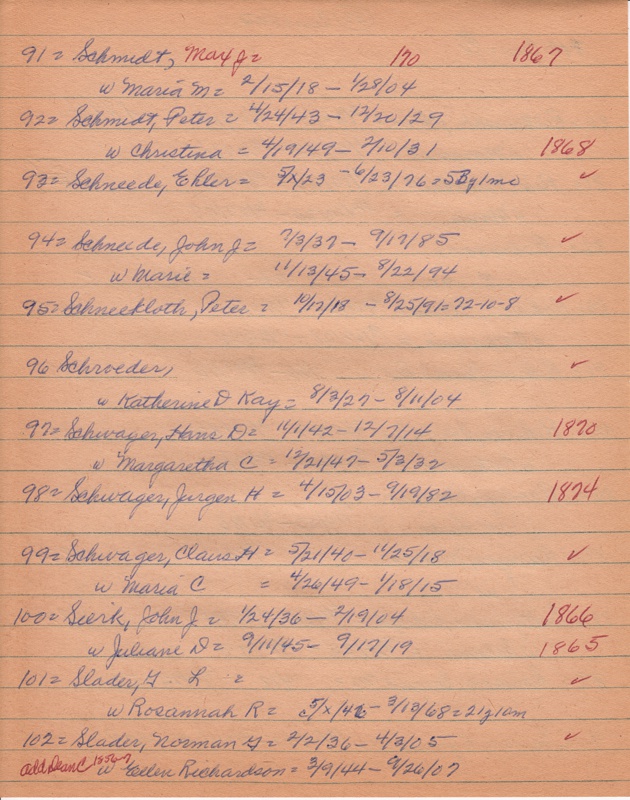 91 = Schmidt, Max J = 170 1867
w Maria M = 2/15/18 - 1/28/04
92 = Schmidt, Peter = 4/24/43 - 12/20/29
w Christina = 4/19/49 - 2/10/31 1868
93 = Schneede, Ehler = 5/x/23 - 6/23/76 = 53y1mo ✓
94 = Schneede, John J = 7/3/37 - 9/17/85 ✓
w Marie = 11/13/45 - 8/22/94
95 = Schneekloth, Peter = 10/17/18 - 8/25/91 = 72-10-8 ✓
96 Schroeder, ✓
w Katherine D Kay = 8/3/27 - 8/11/04
97 = Schwager, Hans D = 11/1/42 - 12/7/14 1870
w Margaretha C = 12/21/47 - 5/3/32
98 = Schwager, Jurgen H = 4/15/03 - 9/19/82 1874
99 = Schwager, Claus H = 5/21/40 - 11/25/18 ✓
w Maria C = 4/26/49 - 1/18/15
100 = Sierk, John J = 1/24/36 - 2/19/04 1866
w Juliane D = 9/11/45 - 9/17/19 1865
101 = Slader, G. L = ✓
w Rosannah R = 5/x/46 - 3/13/68 = 21y10m
102 = Slader, Norman G = 2/2/36 - 4/3/05 ✓
add Dean C w Ellen Richardson = 3/9/44 - 9/26/07